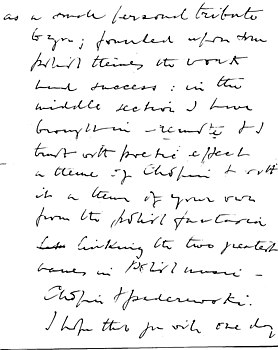 as a small personal tribute
to you; founded upon some
polish themes the work
had success: in the
middle section I have
brought in - remote & I
trust with poetic effect
a theme of Chopin & with
it a theme of your own
from the polish fantasia
linking the two greatest
names in polish music -
Chopin & paderewski.
I hope that you will one day